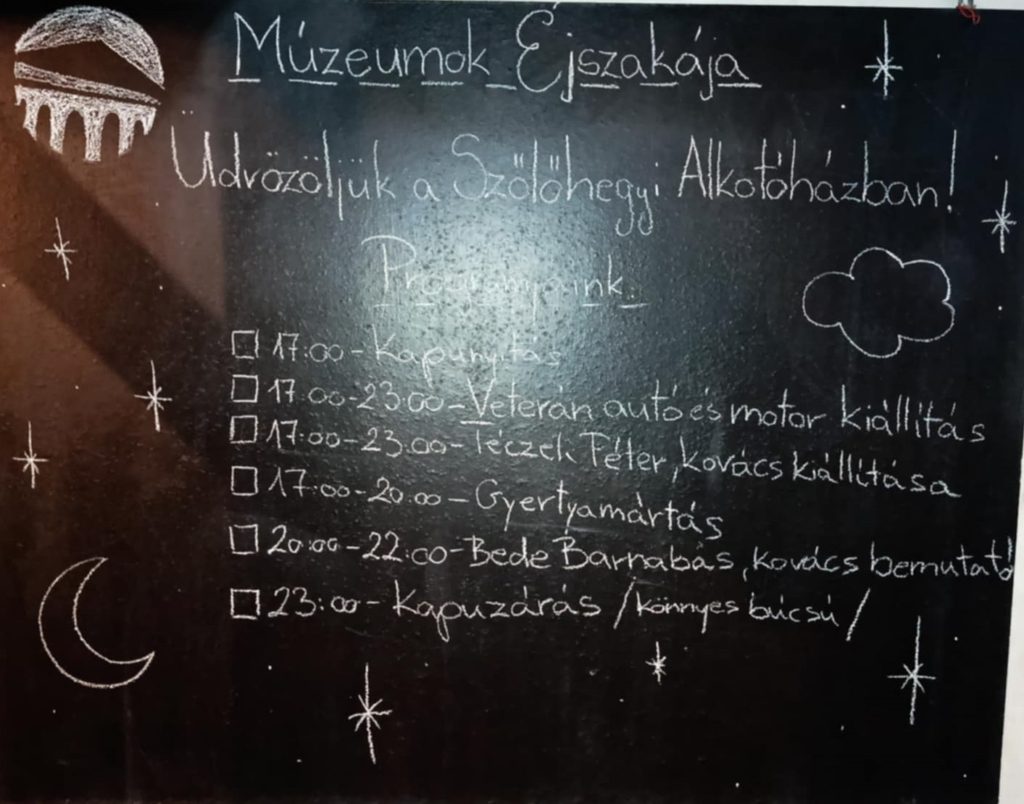 Múzeumok Éjszakája
Üdvözöljük a Szőlőhegyi Alkotóházban!
Programjaink
17:00 - Kapunyitás
17:00-23:00 - Veterán autó és motor kiállítás
17:00-23:00 - Téczely Péter, kovács kiállítása
17:00-20:00 - Gyertyamártás
20:00-22:00 - Bede Barnabás, kovács bemutató
23:00 - Kapuzárás /könnyes búcsú/